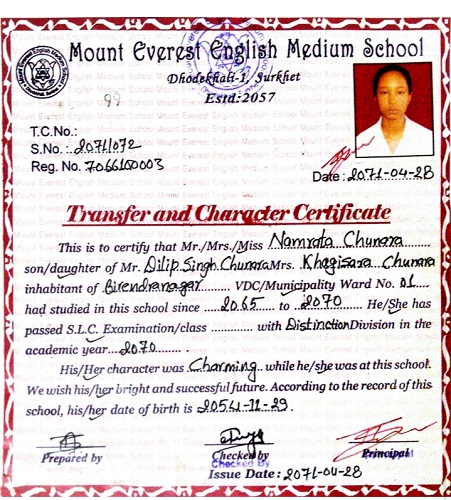 Mount Everest English Medium School
Dhodekhali-1, Surkhet
Estd:2057
99
T.C.No.:
S.No.: 2071072
Reg. No. 7066100003
Date: 2071-04-28
Transfer and Character Certificate
This is to certify that Mr./Mrs./Miss Namrata Chunara
son/daughter of Mr. Dilip Singh Chunara Mrs. Khagisara Chunara
inhabitant of Birendranagar VDC/Municipality Ward No. 01
had studied in this school since 2065 to 2070 He/She has
passed S.L.C. Examination/class with Distinction Division in the
academic year 2070.
His/Her character was Charming while he/she was at this school.
We wish his/her bright and successful future. According to the record of this
school, his/her date of birth is 2054-11-29.
Prepared by
Checked by
Checked By
Principal
Issue Date: 2071-04-28